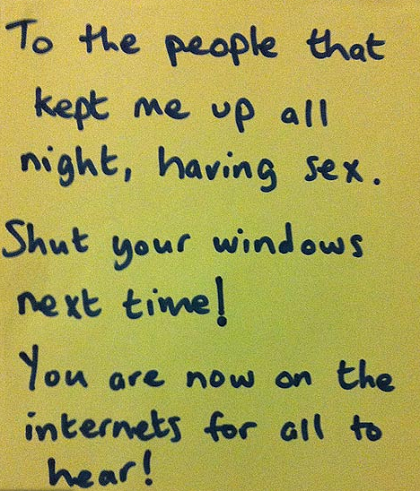 To the people that
kept me up all
night, having sex.
Shut your windows
next time!
You are now on the
internets for all to
hear!